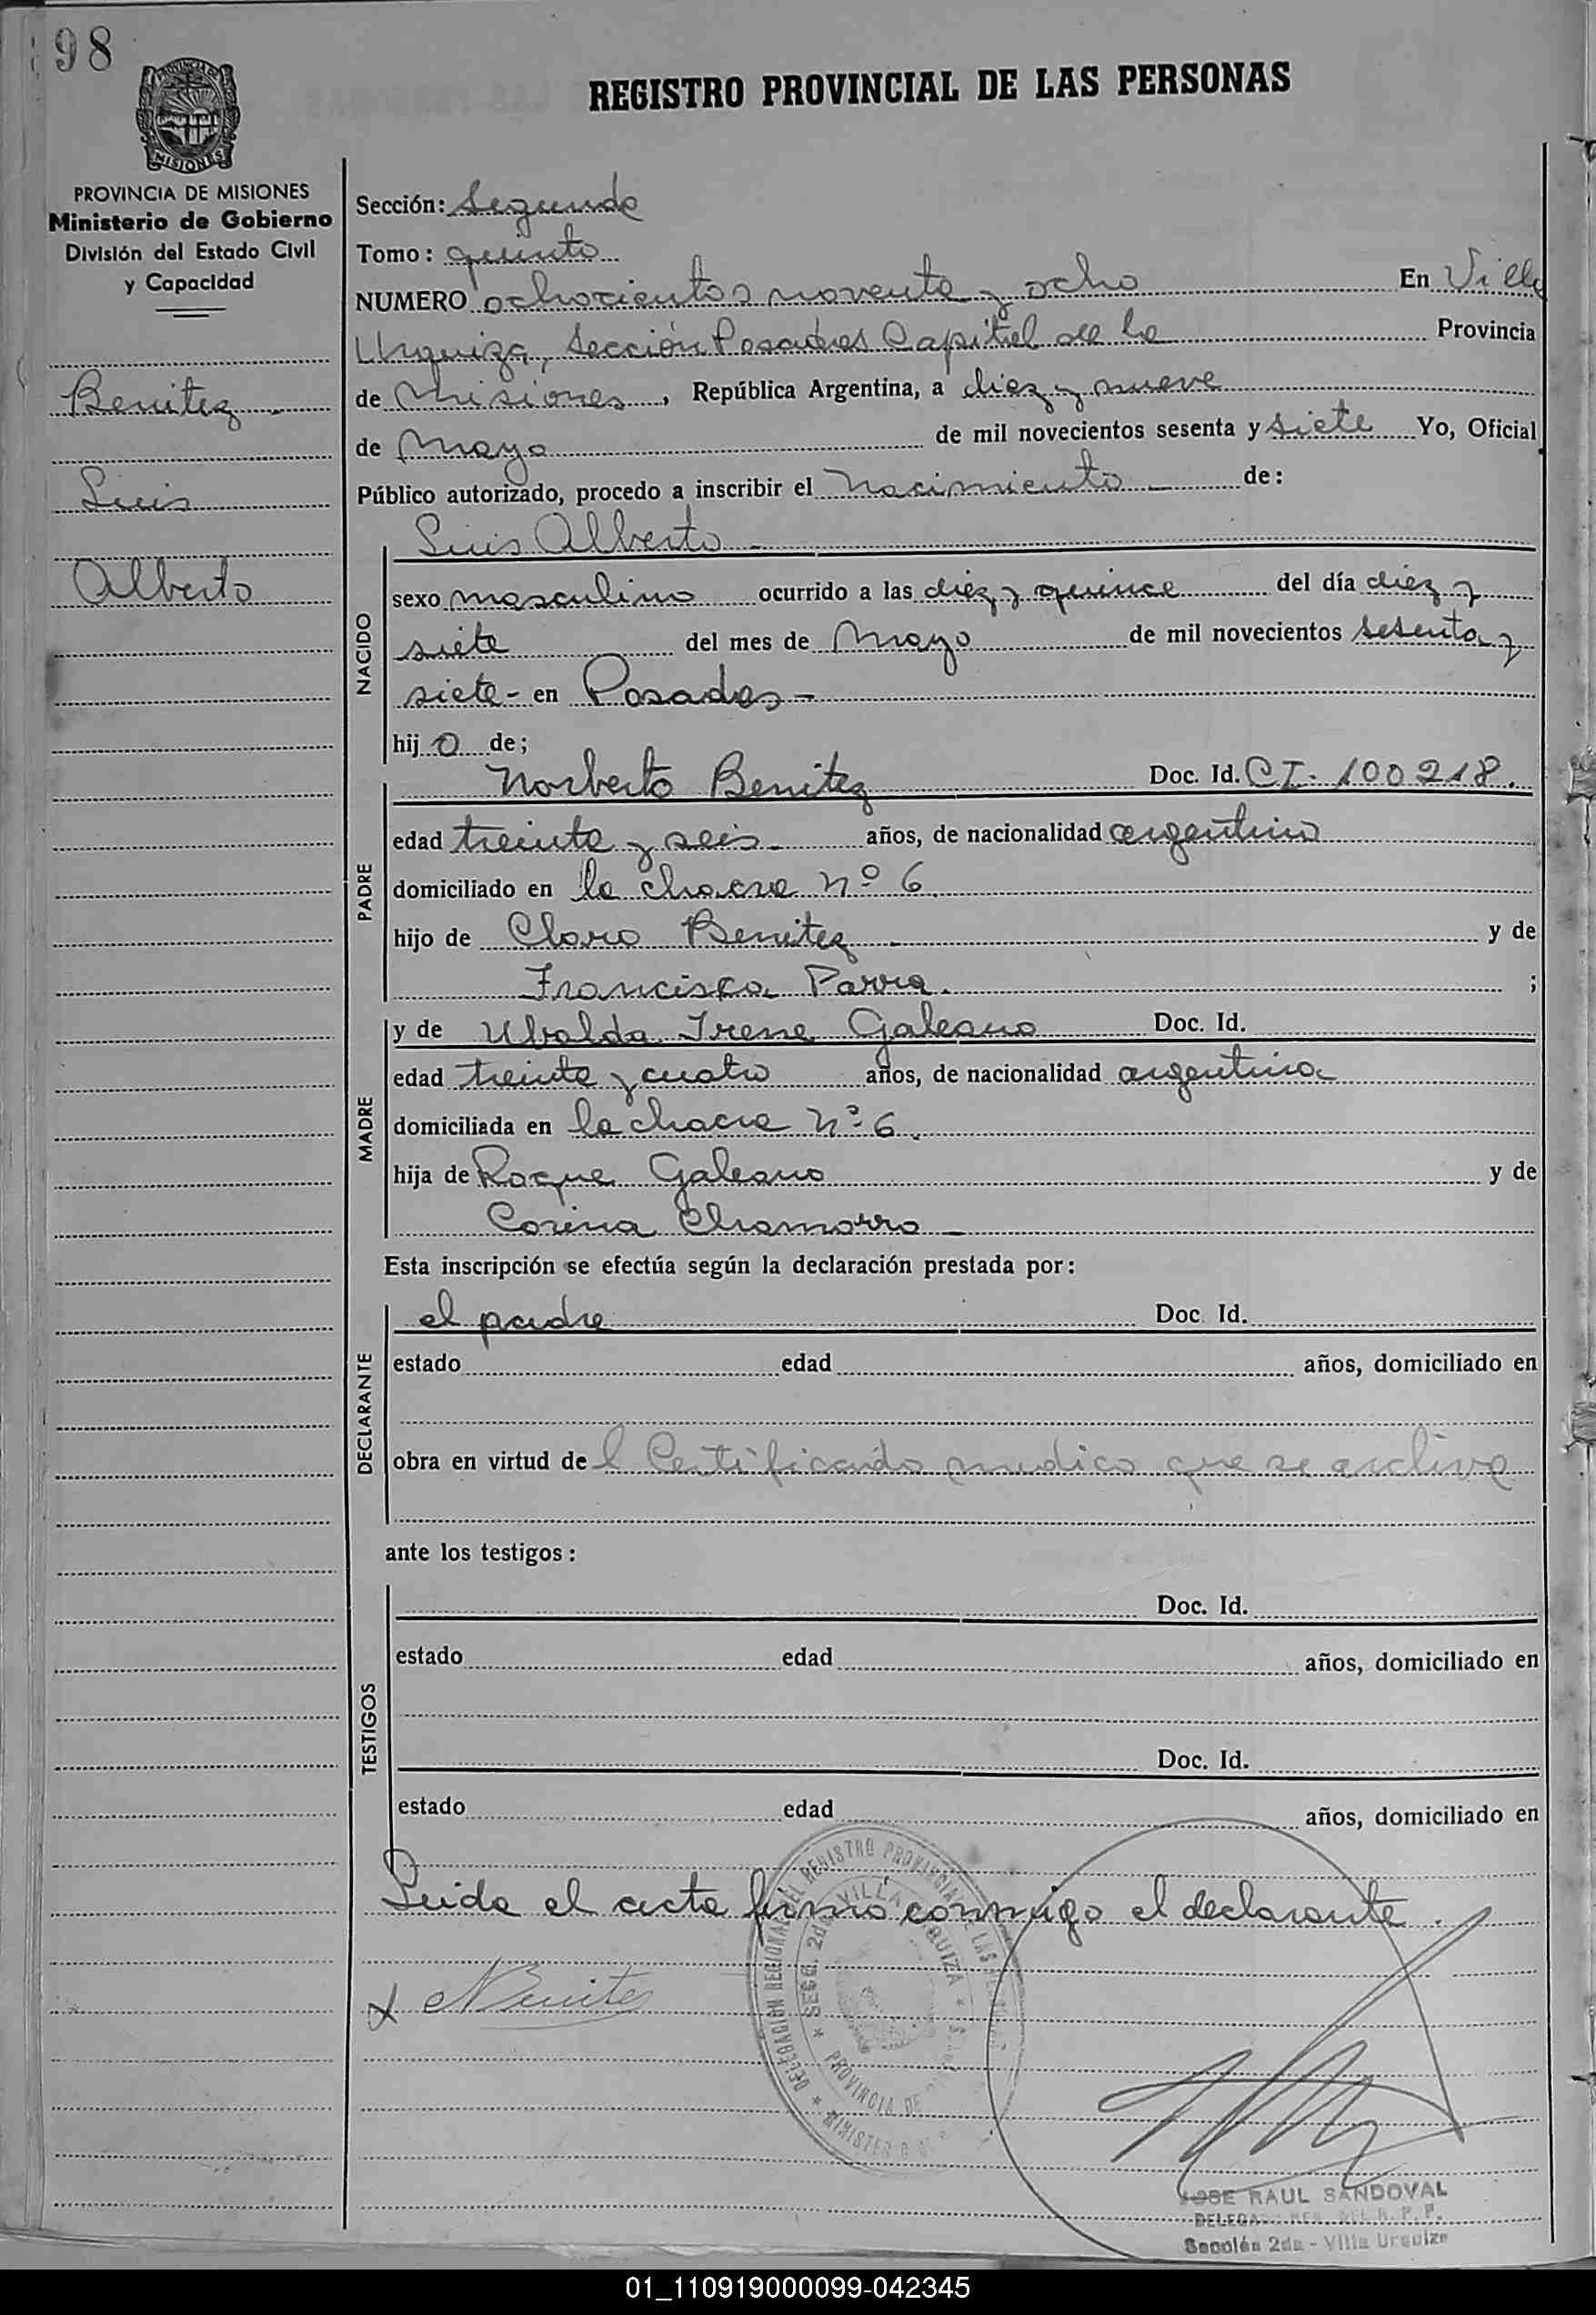 98
PROVINCIA DE
MISIONES
REGISTRO PROVINCIAL DE LAS PERSONAS
PROVINCIA DE MISIONES
Ministerio de Gobierno
División del Estado Civil
y Capacidad
Benitez
Luis
Alberto
Sección: Segunda
Tomo: quinto
NUMERO ochocientos noventa y ocho En Villa
Urquiza, Sección Posadas Capital de la Provincia
de Misiones, República Argentina, a diez y nueve
de Mayo de mil novecientos sesenta y siete Yo, Oficial
Público autorizado, procedo a inscribir el Nacimiento de:
NACIDO
Luis Alberto
sexo masculino ocurrido a las diez y quince del día diez y
siete del mes de Mayo de mil novecientos sesenta y
siete - en Posadas -
hijo de;
PADRE
Norberto Benitez Doc. Id. CI. 100218.
edad treinta y seis años, de nacionalidad argentino
domiciliado en la chacra nº 6.
hijo de Claro Benitez y de
Francisca Parra. ;
MADRE
y de Ubalda Irene Galeano Doc. Id.
edad treinta y cuatro años, de nacionalidad argentina
domiciliada en la chacra nº 6.
hija de Roque Galeano y de
Corina Chamorro
Esta inscripción se efectúa según la declaración prestada por:
DECLARANTE
el padre Doc. Id.
estado edad años, domiciliado en
obra en virtud del Certificado medico que se archiva
ante los testigos:
TESTIGOS
Doc. Id.
estado edad años, domiciliado en
Doc. Id.
estado edad años, domiciliado en
Leida el acta firmó conmigo el declarante.
x NBenites
DELEGACIÓN REGIONAL DEL REGISTRO PROVINCIAL DE LAS
SECC. 2da VILLA URQUIZA
PROVINCIA DE
MINISTERIO DE
JOSE RAUL SANDOVAL
DEL R. P. P.
Sección 2da - Villa Urquiza
01_110919000099-042345